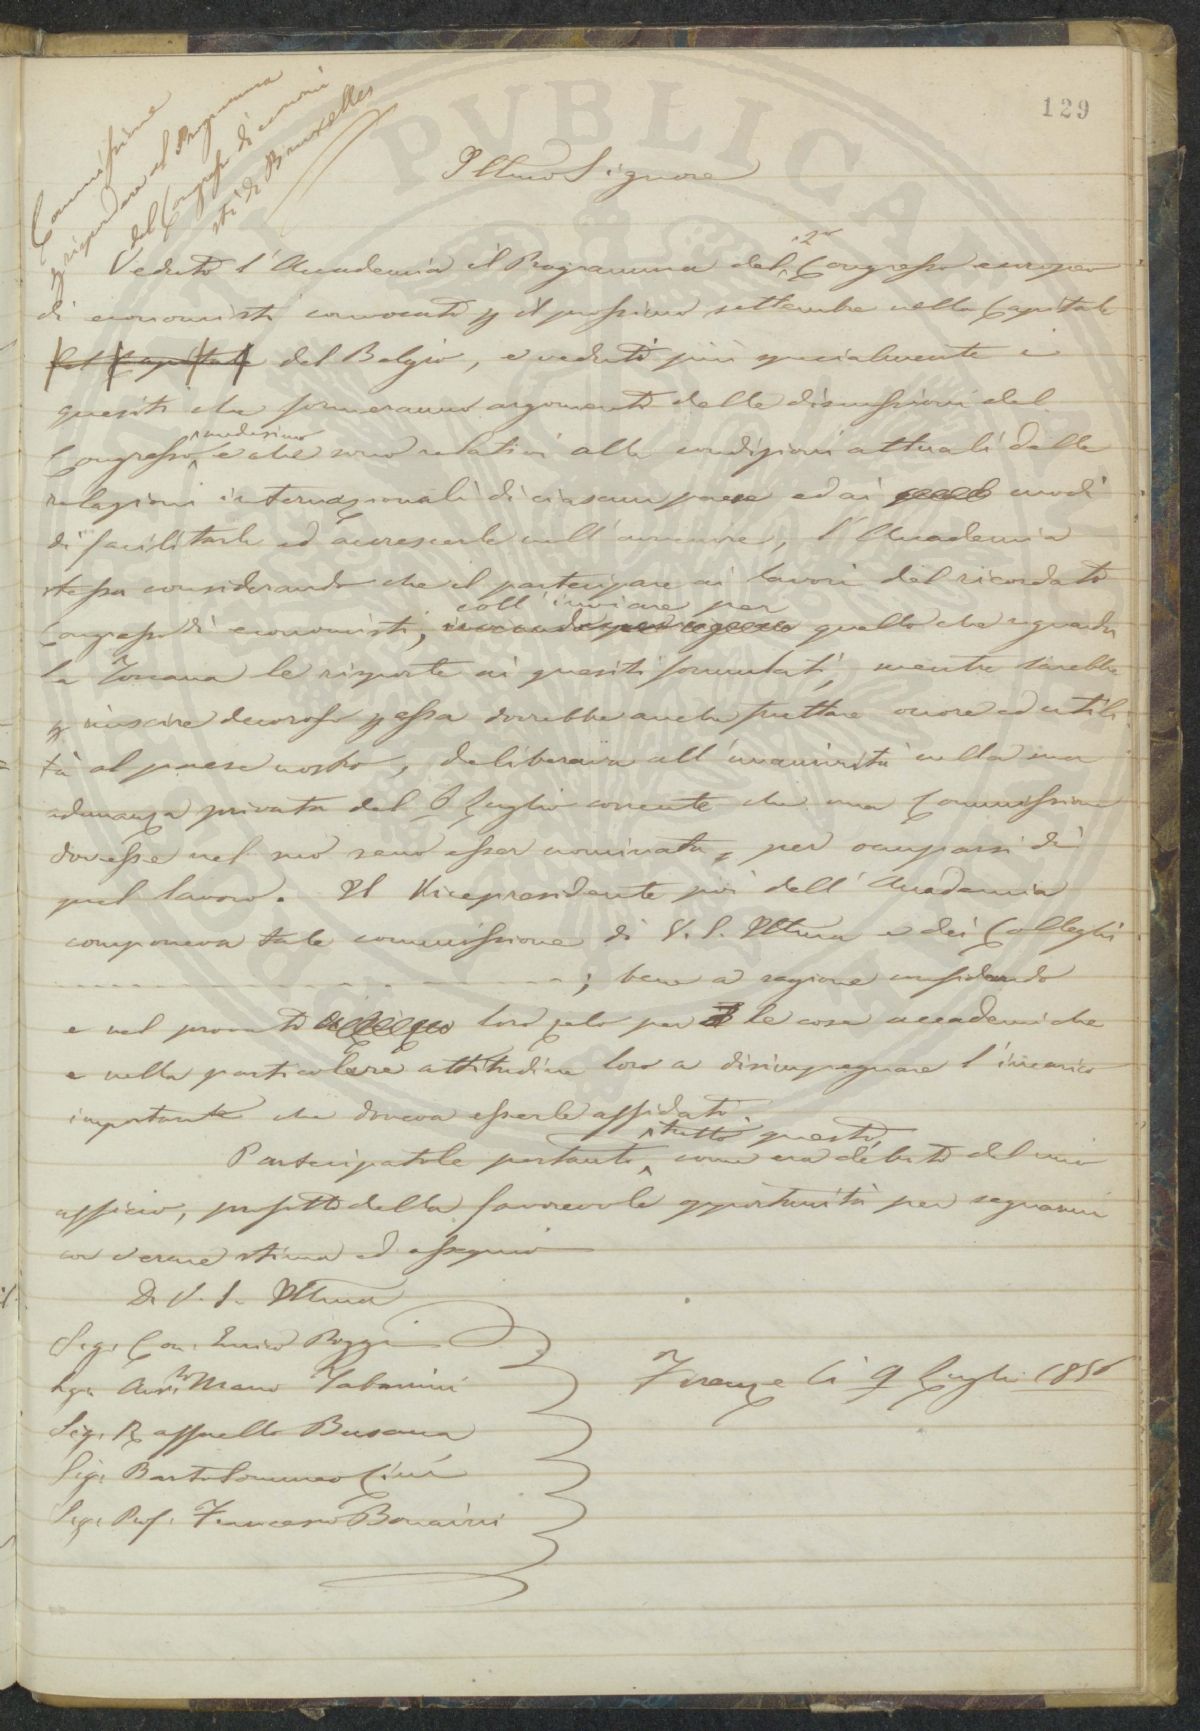 129
Commissione
p rispondere al Programma
del Congresso di economi
sti di Bruxelles
Illmo Signore
Veduto l'Accademia il Programma del 2º Congresso europeo
di economisti convocato p il prossimo settembre nella Capitale
del Capitale del Belgio, e veduti più specialmente i
quesiti che formeranno argomento delle discussioni del
Congresso medesimo e che sono relativi alle condizioni attuali delle
relazioni internazionali di ciascun paese ed ai modi
di facilitarle ed accrescerle nell'avvenire, l'Accademia
stessa considerando che il partecipare ai lavori del ricordato
Congresso di economisti, coll'inviare per quello che riguarda
la Toscana le risposte ai quesiti formulati, mentre sarebbe
p riuscire decoroso p essa dovrebbe anche fruttare onore ed utili
tà al paese nostro, deliberava all'unanimità nella sua
adunanza privata del 6 Luglio corrente che una Commissione
dovesse nel suo seno esser nominata, per occuparsi di
quel lavoro. Il Vicepresidente poi dell'Accademia
componeva tale commissione di V. S. Illma e dei Colleghi
; bene a ragione confidando
e nel provato loro zelo per le cose accademiche
e nella particolare attitudine loro a disimpegnare l'incarico
importante che doveva esserle affidato.
Partecipatole pertanto tutto questo, come era debito del mio
officio, profitto della favorevole opportunità per segnarmi
con verace stima ed ossequio
Di V. S. Illma
Sig. Cav. Enrico Poggi
Sig. Avv. Marco Tabarrini
Sig. Raffaello Busacca
Sig. Bartolommeo Cini
Sig. Prof. Francesco Bonaini
Firenze li 9 Luglio 1856